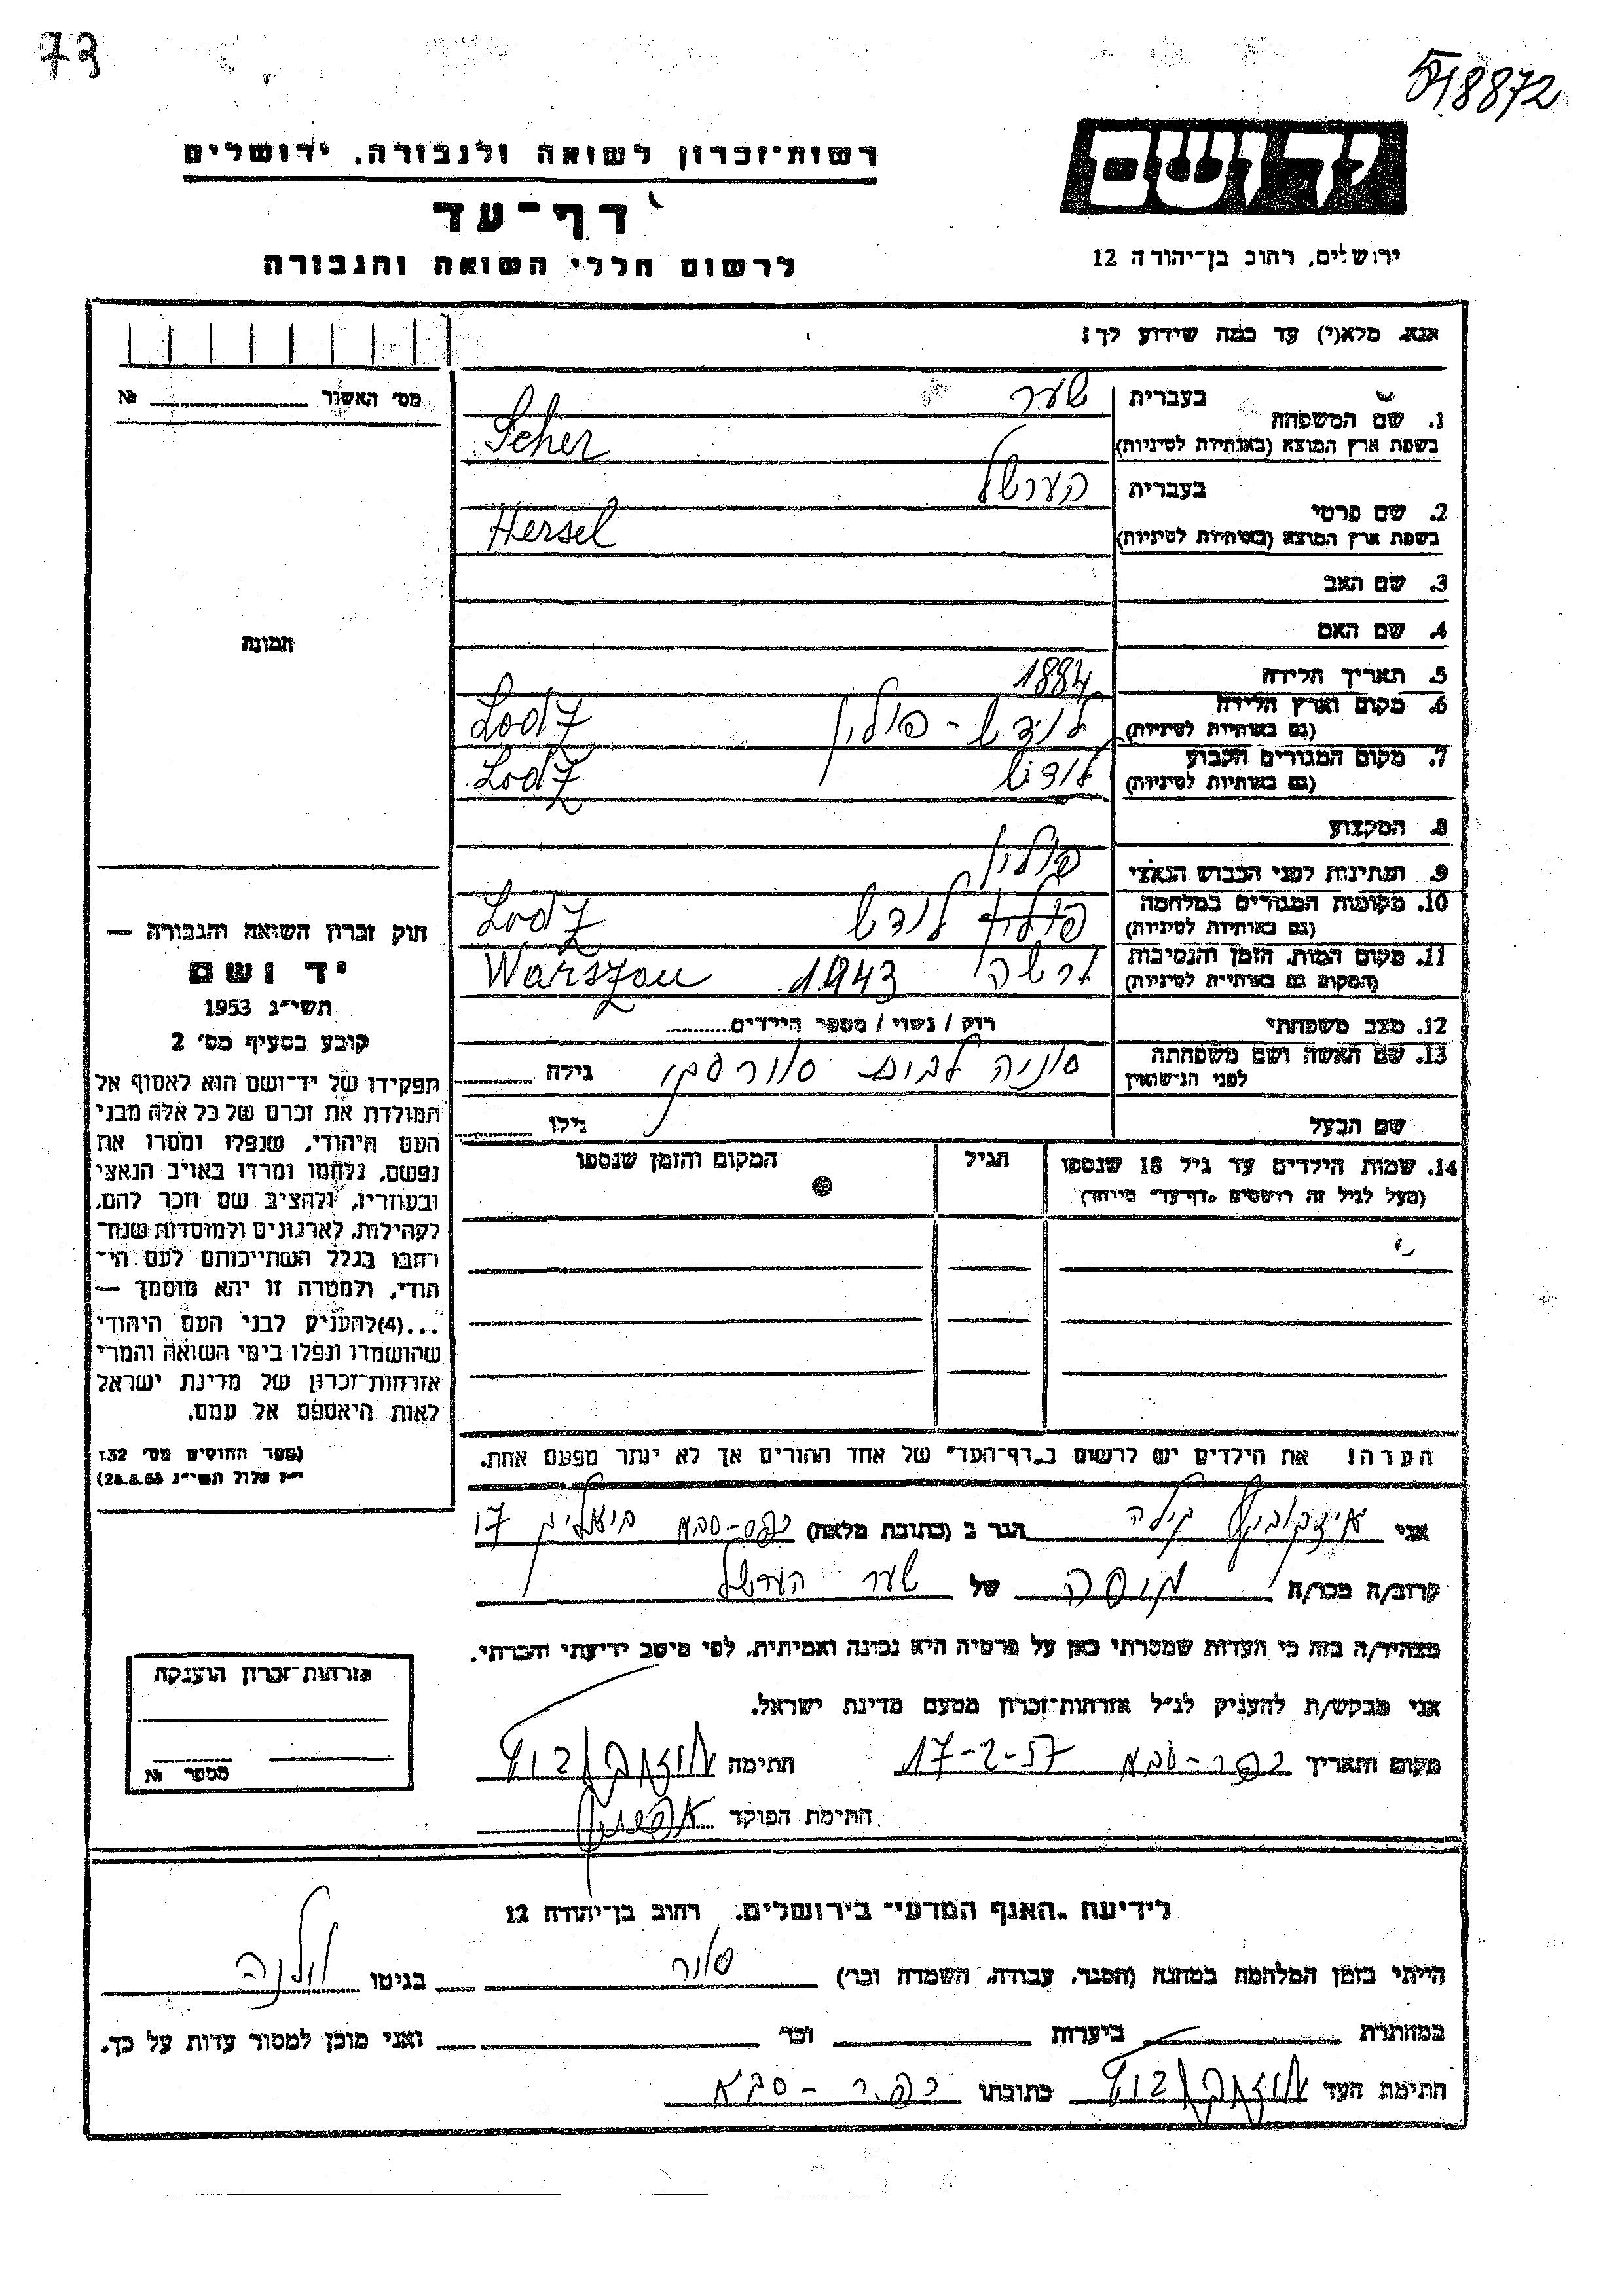 73
548872
יד ושם
ירושלים, רחוב בן־יהודה 12
רשות־זכרון לשואה ולגבורה, ירושלים
דף־עד
לרשום חללי השואה והגבורה
אנא, מלא(י) עד כמה שידוע לך!
מס׳ האשור № 
1. שם המשפחה
בעברית שער
בשפת ארץ המוצא (באותיות לטיניות) Scher
2. שם פרטי
בעברית הערשל
בשפת ארץ המוצא (באותיות לטיניות) Hersel
3. שם האב
4. שם האם
תמונה
5. תאריך הלידה 1884
6. מקום וארץ הלידה לודש - פולין Lodz
(גם באותיות לטיניות)
7. מקום המגורים הקבוע לודש Lodz
(גם באותיות לטיניות)
8. המקצוע
9. הנתינות לפני הכבוש הנאצי פולין
10. מקומות המגורים במלחמה פולין לודש Lodz
(גם באותיות לטיניות)
11. מקום המות, הזמן והנסיבות ורשה 1943 Warszau
(המקום גם באותיות לטיניות)
12. מצב משפחתי רווק / נשוי / מספר הילדים
13. שם האשה ושם משפחתה סוניה לבית גילה
לפני הנישואין
שם הבעל גילו
14. שמות הילדים עד גיל 18 שנספו הגיל המקום והזמן שנספו
(מעל לגיל זה רושמים „דף־עד״ מיוחד)
חוק זכרון השואה והגבורה —
יד ושם
תשי״ג 1953
קובע בסעיף מס׳ 2
תפקידו של יד־ושם הוא לאסוף אל
המולדת את זכרם של כל אלה מבני
העם היהודי, שנפלו ומסרו את
נפשם, נלחמו ומרדו באויב הנאצי
ובעוזריו, ולהציב שם וזכר להם,
לקהילות, לארגונים ולמוסדות שנח־
רבו בגלל השתייכותם לעם הי־
הודי, ולמטרה זו יהא מוסמך —
...(4) להעניק לבני העם היהודי
שהושמדו ונפלו בימי השואה והמרי
אזרחות־זכרון של מדינת ישראל
לאות היאספם אל עמם.
(ספר החוקים מס׳ 132
י״ז אלול תשי״ג 28.8.53)
הערה! את הילדים יש לרשום ב„דף־העד״ של אחד ההורים אך לא יותר מפעם אחת.
אני הגר ב (כתובת מלאה) כפר-סבא 17
קרוב/ה מכר/ה של שער הערשל
מצהיר/ה בזה כי העדות שמסרתי כאן על פרטיה היא נכונה ואמיתית, לפי מיטב ידיעתי והכרתי.
אני מבקש/ת להעניק לנ״ל אזרחות־זכרון מטעם מדינת ישראל.
מקום ותאריך כפר-סבא 17-2-57 חתימה
חתימת הפוקד
אזרחות־זכרון הוענקה
מספר №
לידיעת „האגף המדעי״ בירושלים, רחוב בן־יהודה 12
הייתי בזמן המלחמה במחנה (הסגר, עבודה, השמדה וכו׳) בגיטו וילנה
במחתרת ביערות וכו׳ ואני מוכן למסור עדות על כך.
חתימת העד כתובתו כפר-סבא